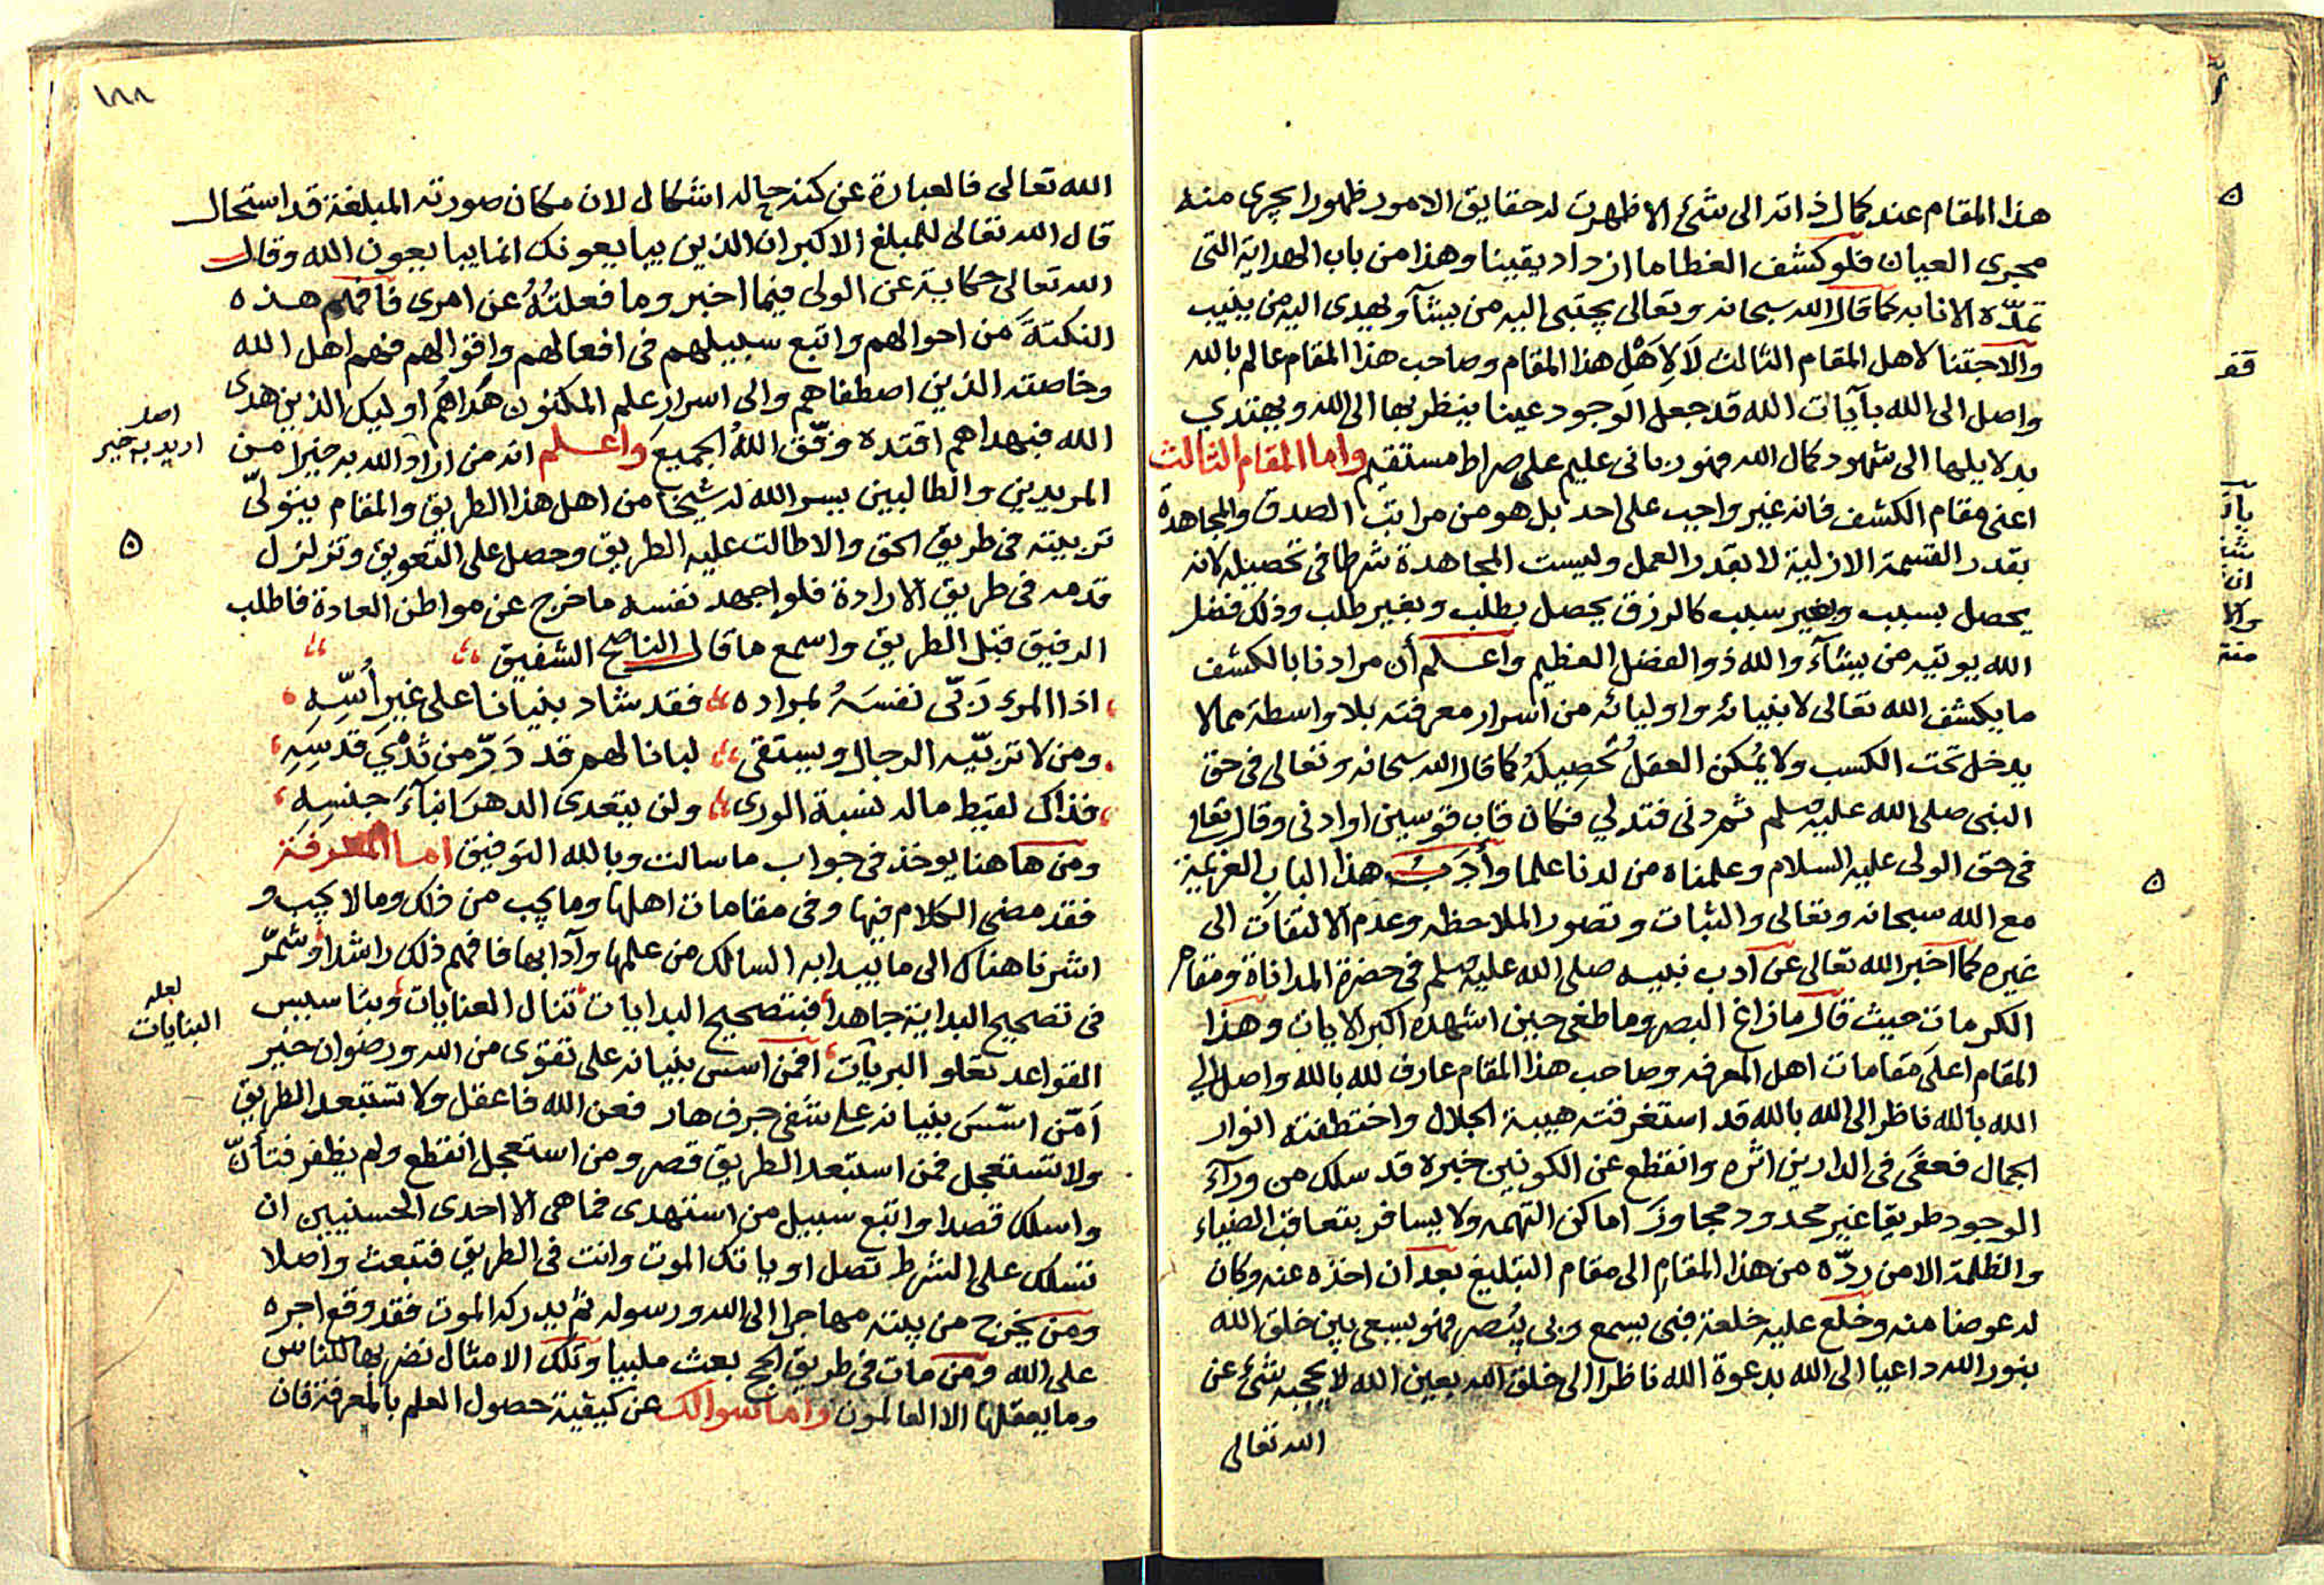 هذا المقام عند كمال ذاته الى شئ الا ظهرت له حقايق الامور ظهورا يجرى منه
مجرى العيان فلو كشف الغطا ما ازداد يقينا وهذا من باب الهداية التى
تمدّه الانابه كما قال الله سبحانه وتعالى يجتبى اليه من يشآ ويهدى اليه من ينيب
والاجتنا لاهل المقام الثالث لَا لِاَهْلِ هذا المقام وصاحب هذا المقام عالم بالله
واصل الى الله بآيات الله قد جعل الوجود عينا ينظر بها الى الله ويهتدي
بدلايلها الى شهود كمال الله فهو ربانى عليم على صراط مستقيم واما المقام الثالث
اعنى مقام الكشف فانه غير واجب على احد بل هو من مراتب الصدق والمجاهدة
بقدر القسمة الازلية لا بقدر العمل وليست المجاهدة شرطا فى تحصيله لانه
يحصل بسبب وبغير سبب كالرزق يحصل بطلب وبغير طلب وذلك فضل
الله يوتيه من يشآء والله ذو الفضل العظيم واعلم أن مرادنا بالكشف
ما يكشف الله تعالى لانبيائه واوليائه من اسرار معرفته بلا واسطة مما لا
يدخل تحت الكسب ولا يُمكن العقلُ تحصِيلهُ كما قال الله سبحانه وتعالى فى حق
النبى صلى الله عليه وسلم ثم دنى فتدلي فكان قاب قوسين او ادنى وقال تعالى
فى حق الولى عليه السلام وعلمناه من لدنا علما وأدَبُ هذا الباب العزيمة
مع الله سبحانه وتعالى والثبات وتصور الملاحظه وعدم الالتفات الى
غيره كما اخبر الله تعالى عن آدب نبيه صلى الله عليه وسلم فى حضرة المداناة ومقام
الكرمات حيث قال ما زاغ البصر وما طغى حين اشهده اكبر الايات وهذا
المقام اعلى مقامات اهل المعرفه وصاحب هذا المقام عارف لله بالله واصل الي
الله بالله ناظر الى الله بالله قد استغرقته هيبة الجلال واختطفته انوار
الجمال فعفى فى الدارين اثره وانقطع عن الكونين خبره قد سلك من ورآء
الوجود طريقا غير محدود مجاوزَ اماكن التهمه ولا يسافر بتعاقب الضياء
والظلمة الا من ردّه من هذا المقام الى مقام التبليغ بعد ان اخذه عنه وكان
له عوضا منه وخلع عليه خلعة فبى يسمع وبى يُبصر فهو يسعى بين خلق الله
بنور الله داعيا الى الله بدعوة الله ناظرا الى خلق الله بعين الله لا يحجبه شئ عن
الله تعالى
قف
١٨٨
الله تعالى فالعبارة عن كنه حاله اشكال لان مكان صورته المبلغة قد استحال
قال الله تعالى للمبلغ الاكبر ان الذين يبايعونك انما يبايعون الله وقال
الله تعالى حكاية عن الولى فيما اخبر وما فعلتُهُ عن امرى فافهم هذه
النكتةَ من احوالهم واتبع سبيلهم فى افعالهم واقوالهم فهم اهل الله
وخاصته الذين اصطفاهم والى اسرار علم المكنون هَداهُم اوليك الذين هدى
الله فبهداهم اقتده وَفّقَ اللهُ الجميعَ واعلم انه من اراد الله به خيرا من
المريدين والطالبين يسر الله له شيخا من اهل هذا الطريق والمقام يتولّى
تربيته فى طريق الحق والا طالت عليه الطريق وحصل على التعويق وتزلزل
قدمه فى طريق الارادة فلو اجهد نفسه ما خرج عن مواطن العادة فاطلب
الرفيق قبل الطريق واسمع ما قال الناصح الشفيق
اذا المرء رَبّى نفسَهُ بمراده فقد شاد بنيانا على غير اُسِّهِ
ومن لا تربّيه الرجال ويستقى لبانا لهم قد دَرّ من ثَدْيَ قدسِهِ
فذاك لقيط ماله نسبة الورى ولن يتعدى الدهرَ ابنآءَ جنسِهِ
ومن هاهنا يوخذ فى جواب ما سالت وبالله التوفيق اما المعرفة
فقد مضى الكلام فيها وفى مقامات اهلها وما يجب من ذلك وما لا يجب و
اشرنا هناك الى ما يبدا به السالك من علمها وآدابها فافهم ذلك راشدا وشمّر
فى تصحيح البداية جاهدا فبتصحيح البدايات تنال العنايات وبتاسيس
القواعد تعلو البريآت افمن اسس بنيانه على تقوى من الله ورضوان خير
اَمّن اسّسَ بنيانه على شفى جرف هار فعن الله فاعقل ولا تستبعد الطريق
ولا تستعجل فمن استبعد الطريق قصر ومن استعجل انقطع ولم يظفر فتأنّ
واسلك قصدا واتبع سبيل من استهدى فما هى الا احدى الحسنيين ان
تسلك على الشرط تصل او ياتك الموت وانت فى الطريق فتبعث واصلا
ومن يخرج من بيته مهاجرا الى الله ورسوله ثم يدركه الموت فقد وقع اجره
على الله ومن مات فى طريق الحج بعث ملبيا وتلك الامثال نضربها للناس
وما يعقلها الا العالمون واما سوالك عن كيفية حصول العلم بالمعرفة فان
اصل
اريد به خير
لعله
البنايات